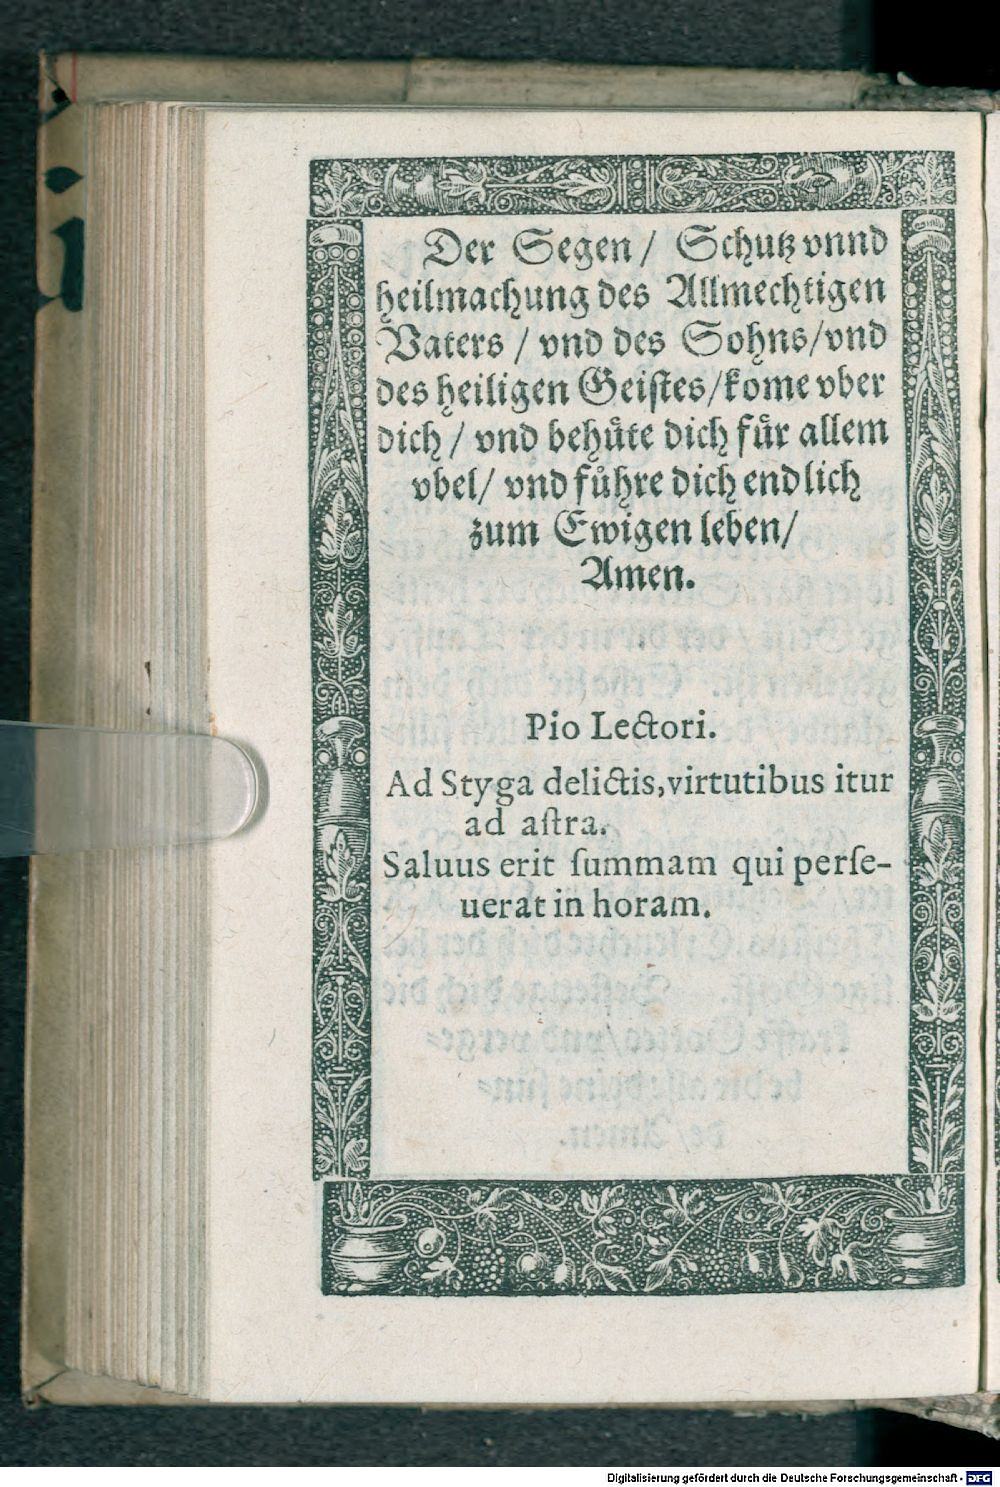 Der Segen/ Schutz vnnd
heilmachung des Allmechtigen
Vaters / vnd des Sohns/vnd
des heiligen Geistes/kome vber
dich / vnd behuͤte dich fuͤr allem
vbel/ vnd fuͤhre dich endlich
zum Ewigen leben/
Amen.
Pio Lectori.
Ad Styga delictis,virtutibus itur
ad aſtra.
Saluus erit ſummam qui perſe-
uerat in horam.
Digitalisierung gefördert durch die Deutsche Forschungsgemeinschaft - DFG